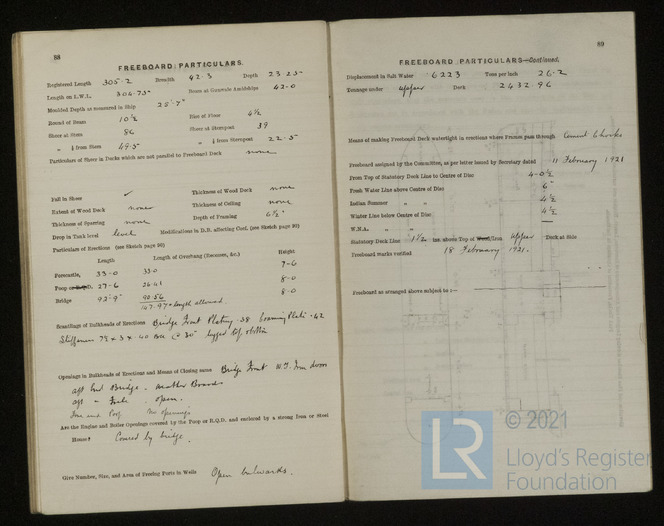 88
FREEBOARD PARTICULARS.
Registered Length 305·2 Breadth 42·3 Depth 23·25
Length on L.W.L. 304·75 Beam at Gunwale Amidships 42·0
Moulded Depth as measured in Ship 25'·7"
Round of Beam 10½ Rise of Floor 4½
Sheer at Stem 86 Sheer at Sternpost 39
" ⅛ from Stem 49·5 " ⅛ from Sternpost 22·5
Particulars of Sheer in Decks which are not parallel to Freeboard Deck none
Fall in Sheer ✓ Thickness of Wood Deck none
Extent of Wood Deck none Thickness of Ceiling none
Thickness of Sparring none Depth of Framing 6½"
Drop in Tank local level Modifications in D.B. affecting Coef. (see Sketch page 90)
Particulars of Erections (see Sketch page 90)
Length Length of Overhang (Recesses, &c.) Height
Forecastle, 33-0 33·0 7-6
Poop or R.Q.D. 27-6 26·41 8-0
Bridge 92'·9" 90·56 8-0
147·97 = length allowed.
Scantlings of Bulkheads of Erections Bridge Front Plating ·38 Coaming Plate ·42
Stiffeners 7½ × 3 × ·40 @ 30"
Openings in Bulkheads of Erections and Means of Closing same Bridge Front W.T. Iron doors
aft End Bridge - weather Boards
aft " Fcle . open.
Poop no openings
Are the Engine and Boiler Openings covered by the Poop or R.Q.D. and enclosed by a strong Iron or Steel
House? Covered by bridge.
Give Number, Size, and Area of Freeing Ports in Wells Open bulwarks.
89
FREEBOARD PARTICULARS—Continued.
Displacement in Salt Water 6223 Tons per inch 26·2
Tonnage under upper Deck 2432·96
Means of making Freeboard Deck watertight in erections where Frames pass through Cement Chocks
Freeboard assigned by the Committee, as per letter issued by Secretary dated 11 February 1921
From Top of Statutory Deck Line to Centre of Disc 4-0½
Fresh Water Line above Centre of Disc 6"
Indian Summer " " 4½
Winter Line below Centre of Disc 4½
W.N.A. " " —
Statutory Deck Line 1½ ins. above Top of Wood/Iron upper Deck at Side
Freeboard Marks verified 18 February 1921.
Freeboard as arranged above subject to :—
LR © 2021
Lloyd's Register
Foundation